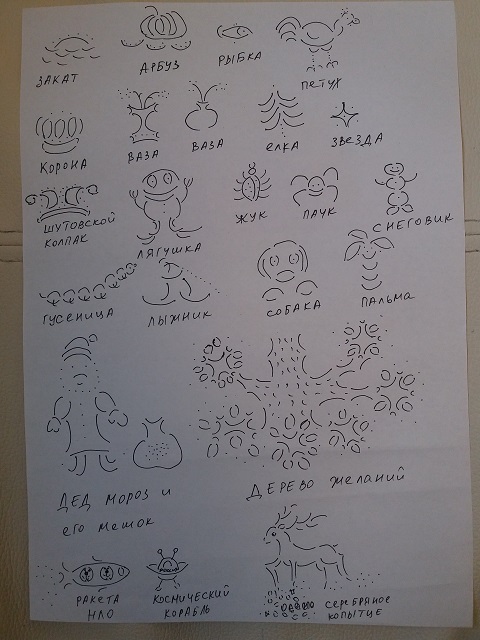 ЗАКАТ
АРБУЗ
РЫБКА
ПЕТУХ
КОРОНА
ВАЗА
ВАЗА
ЕЛКА
ЗВЕЗДА
ШУТОВСКОЙ
КОЛПАК
ЛЯГУШКА
ЖУК
ПАУК
СНЕГОВИК
ГУСЕНИЦА
ЛЫЖНИК
СОБАКА
ПАЛЬМА
ДЕД МОРОЗ И
ЕГО МЕШОК
ДЕРЕВО ЖЕЛАНИЙ
РАКЕТА
НЛО
КОСМИЧЕСКИЙ
КОРАБЛЬ
СЕРЕБРЯНОЕ
КОПЫТЦЕ